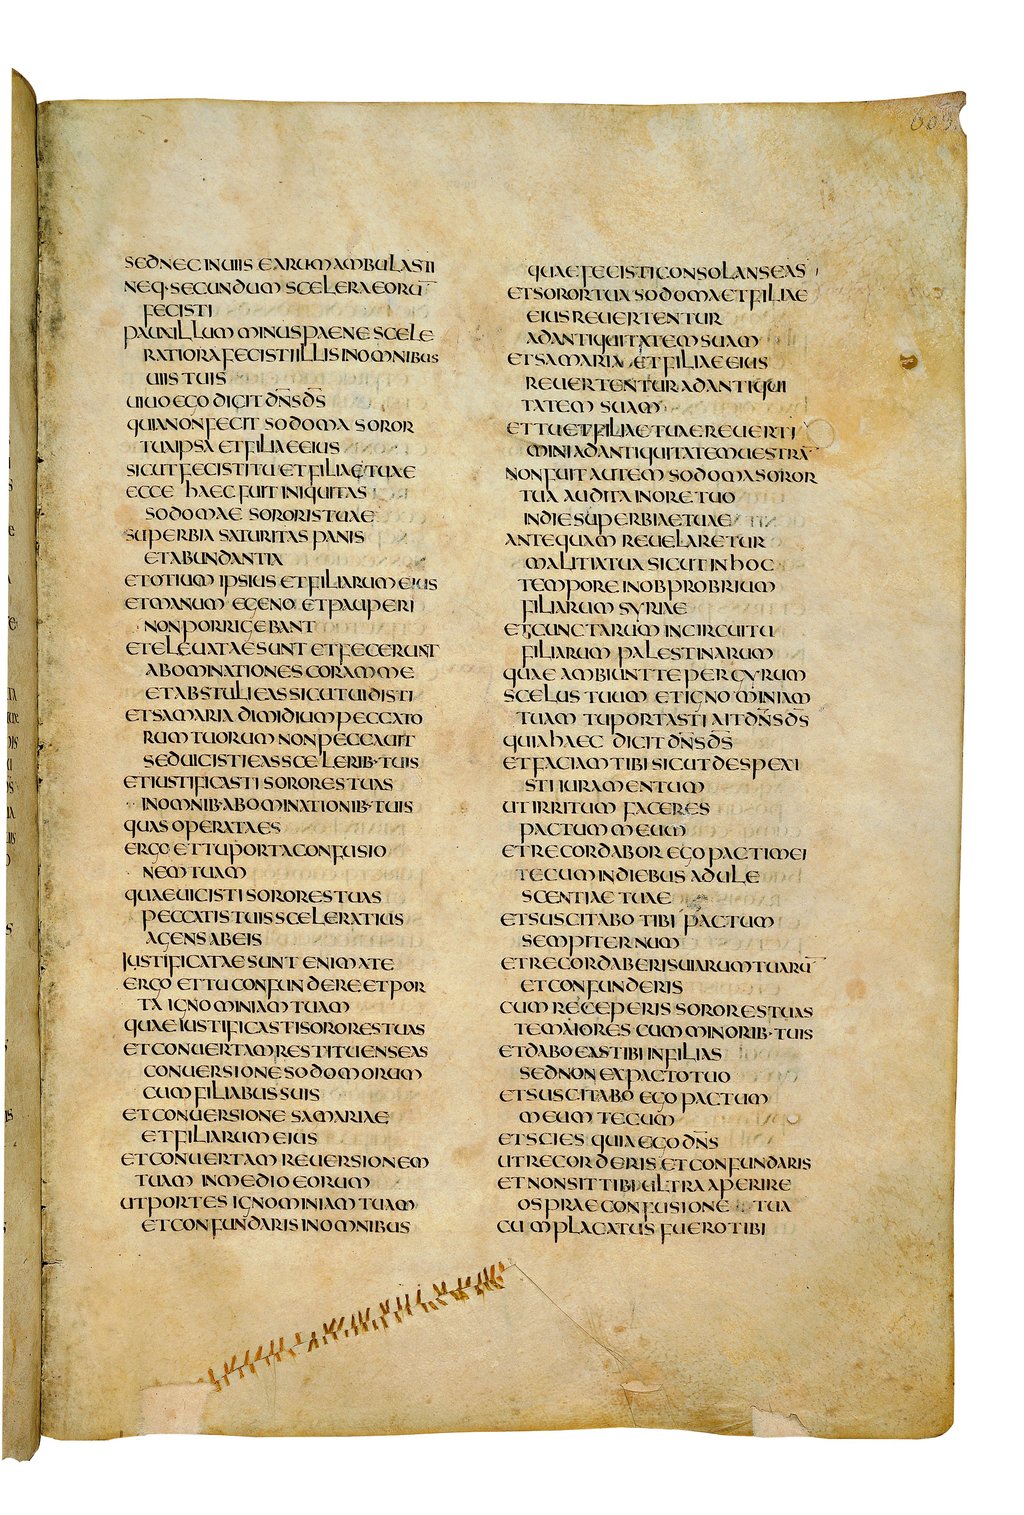 SEDNEC INUIIS EARUMAMBULASTI
NEQ·SECUNDUM SCELERAEORŪ
FECISTI
PAUXILLUM MINUSPAENE SCELE
RATIORAFECISTIILLISINOMNIBUS
UIIS TUIS
UIUOEGO DICIT DN̅SDS̅
QUIANONFECIT SODOMA SOROR
TUAIPSA ETFILIAEEIUS
SICUTFECISTITU ETFILIAETUAE
ECCE HAECFUITINIQUITAS
SODOMAE SORORISTUAE
SUPERBIA SATURITAS PANIS
ETABUNDANTIA
ETOTIUM IPSIUS ETFILIARUMEIUS
ETMANUM EGENO ETPAUPERI
NONPORRIGEBANT
ETELEUATAESUNT ETFECERUNT
ABOMINATIONES CORAMME
ETABSTULIEASSICUTUIDISTI
ETSAMARIA DIMIDIUMPECCATO
RUMTUORUM NONPECCAUIT
SEDUICISTIEASSCELERIB·TUIS
ETIUSTIFICASTI SORORESTUAS
INOMNIB·ABOMINATIONIB·TUIS
QUAS OPERATAES
ERGO ETTUPORTACONFUSIO
NEMTUAM
QUAEUICISTISORORESTUAS
PECCATISTUISSCELERATIUS
AGENSABEIS
IUSTIFICATAESUNT ENIMATE
ERGO ETTUCONFUNDEREETPOR
TA IGNOMINIAMTUAM
QUAEIUSTIFICASTISORORESTUAS
ETCONUERTAMRESTITUENSEAS
CONUERSIONESODOMORUM
CUMFILIABUSSUIS
ETCONUERSIONE SAMARIAE
ETFILIARUMEIUS
ETCONUERTAM REUERSIONEM
TUAM INMEDIOEORUM
UTPORTES IGNOMINIAMTUAM
ETCONFUNDARISINOMNIBUS
QUAEFECISTICONSOLANSEAS
ETSORORTUA SODOMAETFILIAE
EIUSREUERTENTUR
ADANTIQUITATEMSUAM
ETSAMARIA ETFILIAEEIUS
REUERTENTURADANTIQUI
TATEM SUAM
ETTUETFILIAETUAEREUERTI
MINIADANTIQUITATEMUESTRĀ
NONFUITAUTEM SODOMASOROR
TUA AUDITAINORETUO
INDIESUPERBIAETUAE
ANTEQUAM REUELARETUR
MALITIATUA SICUTINHOC
TEMPORE INOBPROBRIUM
FILIARUM SYRIAE
ETCUNCTARUM INCIRCUITU
FILIARUM PALESTINARUM
QUAE AMBIUNTTEPERGYRUM
SCELUSTUUM ETIGNOMINIAM
TUAM TUPORTASTI AITDN̅SDS̅
QUIAHAEC DICITDN̅SDS̅
ETFACIAMTIBISICUTDESPEXI
STIIURAMENTUM
UTIRRITUM FACERES
PACTUMMEUM
ETRECORDABOR EGOPACTIMEI
TECUMINDIEBUS ADULE
SCENTIAE TUAE
ETSUSCITABO TIBI PACTUM
SEMPITERNUM
ETRECORDABERISUIARUMTUARŪ
ETCONFUNDERIS
CUM RECEPERIS SORORESTUAS
TEMAIORES CUMMINORIB·TUIS
ETDABOEASTIBIINFILIAS
SEDNONEXPACTOTUO
ETSUSCITABO EGOPACTUM
MEUM TECUM
ETSCIES QUIAEGODN̅S
UTRECORDERIS ETCONFUNDARIS
ETNONSITTIBIULTRAAPERIRE
OSPRAECONFUSIONE TUA
CUMPLACATUS FUEROTIBI